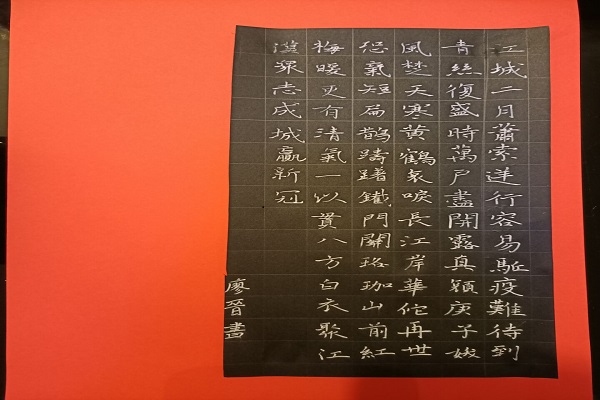 江城二月蕭索逆行容易駈疫難待到
青絲復盛時萬戶盡開露真穎庚子妖
風楚天寒黄鶴哀唳長江岸華佗再世
怹氣短扁鹊躊躇鐵門關珞珈山前紅
梅暖更有清氣一以貫八方白衣聚江
漢眾志成城贏新冠
廖晉書